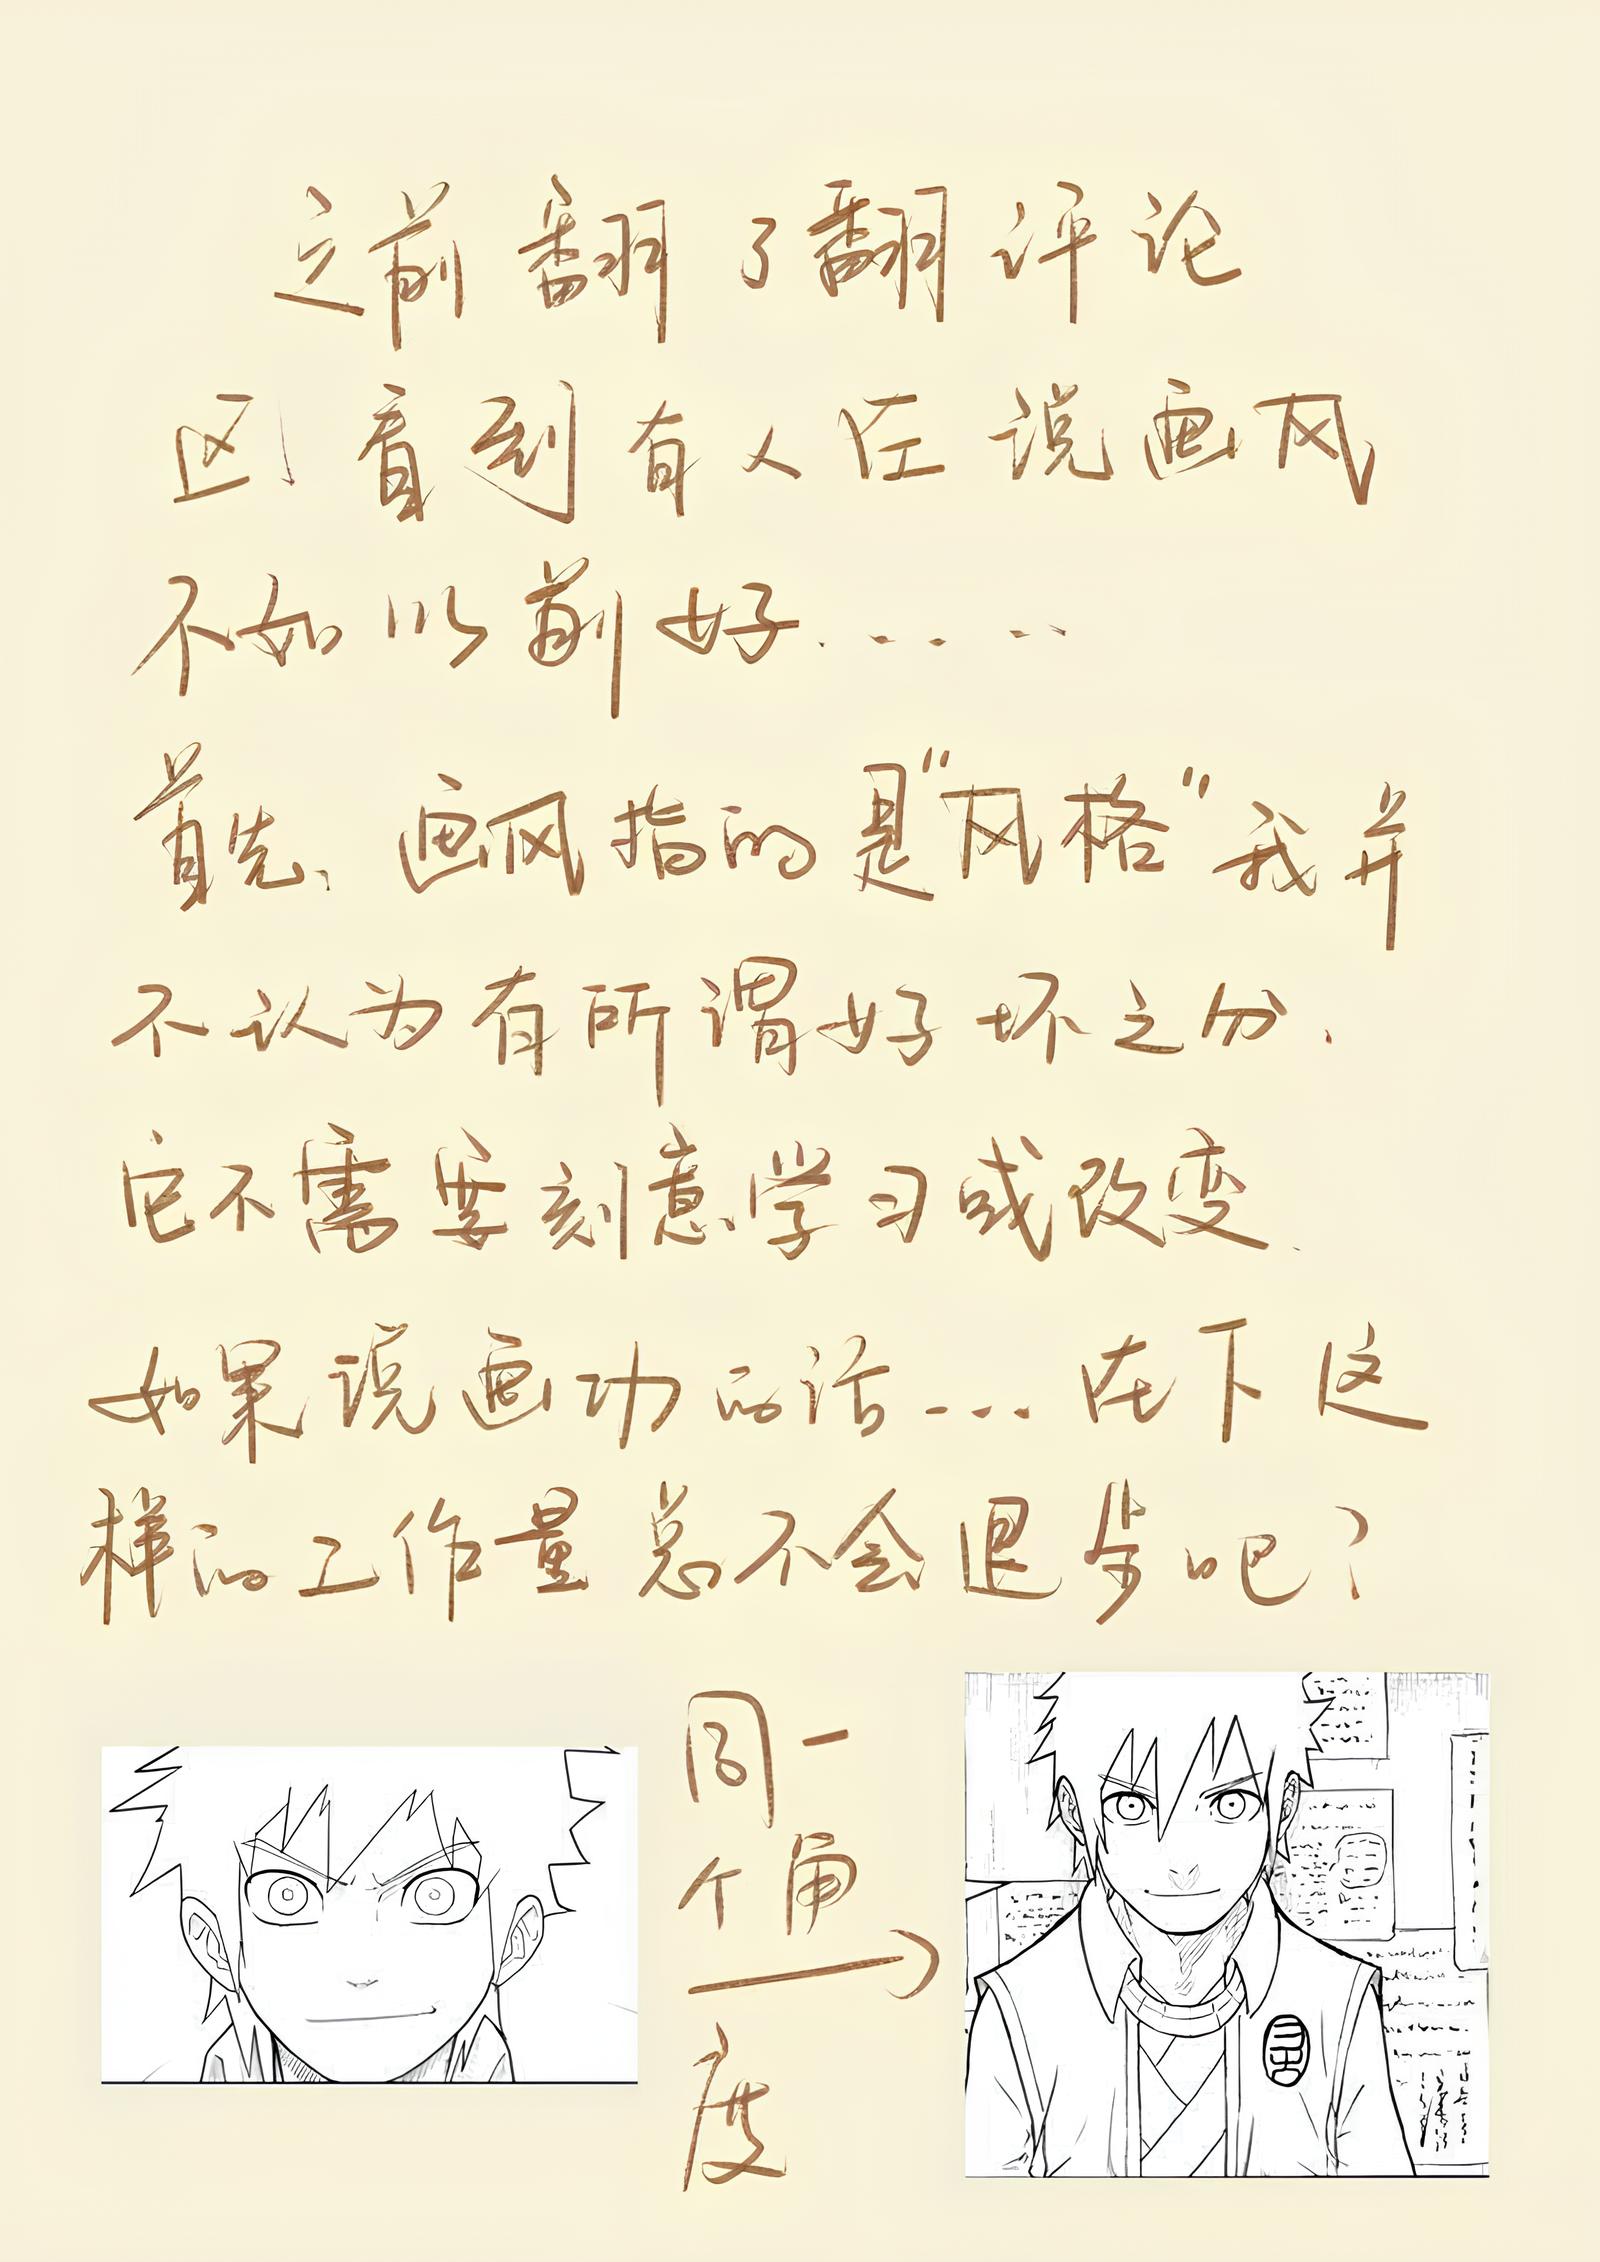 之前翻了翻评论
区看到有人在说画风
不如以前好......
首先、画风指的是"风格"我并
不认为有所谓好坏之分.
它不需要刻意学习或改变.
如果说画功的话...在下这
样的工作量总不会退步吧?
同一
个角
度